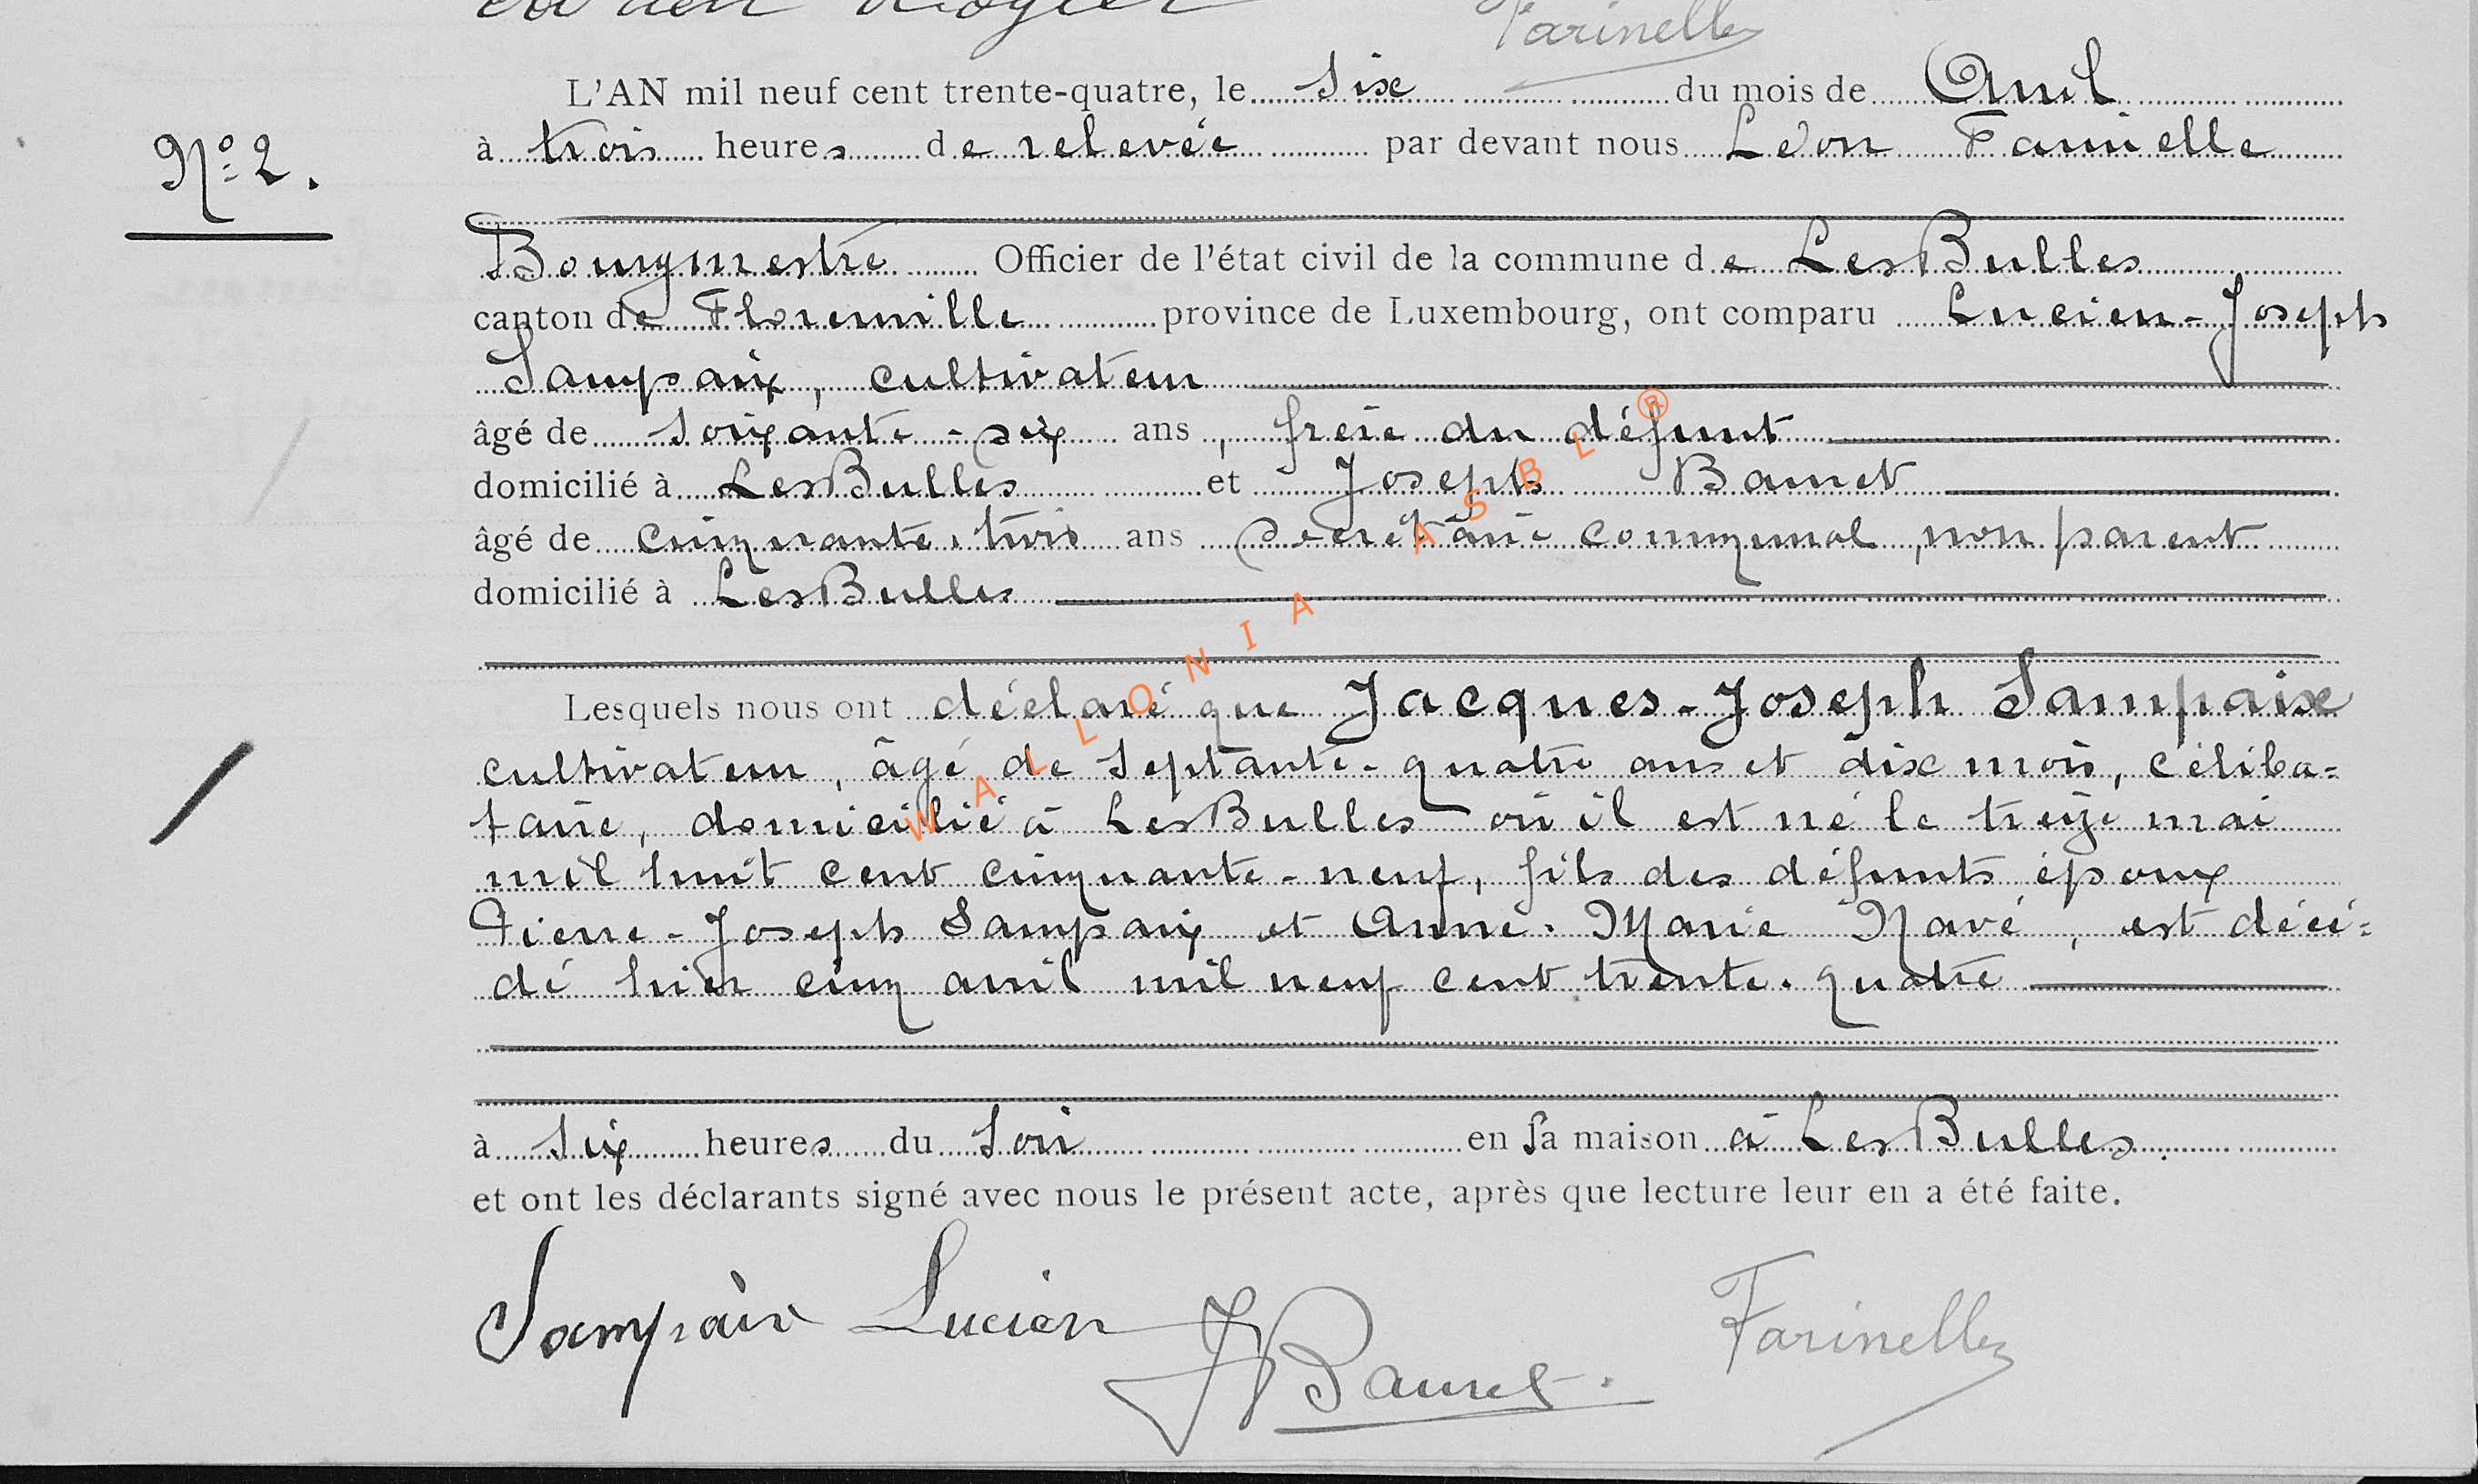 Farinelle
L'AN mil neuf cent trente-quatre, le six du mois de Avril
à trois heures de relevée par devant nous Léon Farinelle
N° 2.
Bourgmestre Officier de l'état civil de la commune de Les Bulles
canton de Florenville province de Luxembourg, ont comparu Lucien-Joseph
Sampaix, cultivateur
âgé de soixante-six ans, frère du défunt
domicilié à Les Bulles et Joseph
âgé de cinquante-trois ans secrétaire communal, non parent
domicilié à Les Bulles
Lesquels nous ont déclaré que Jacques-Joseph Sampaix
cultivateur, âgé de septante-quatre ans et dix mois, céliba=
taire, domicilié à Les Bulles où il est né le treize mai
mil huit cent cinquante-neuf, fils des défunts époux
Pierre-Joseph Sampaix et Anne-Marie Navé, est décé=
dé hier cinq avril mil neuf cent trente-quatre
à six heures du soir en sa maison à Les Bulles.
et ont les déclarants signé avec nous le présent acte, après que lecture leur en a été faite.
Sampaix Lucien
Farinelle
WALLONIA ASBL ®